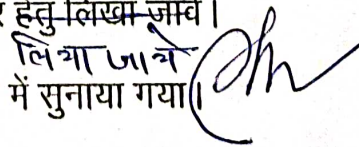 हेतु लिखा जावे।
लिया जाये
में सुनाया गया।